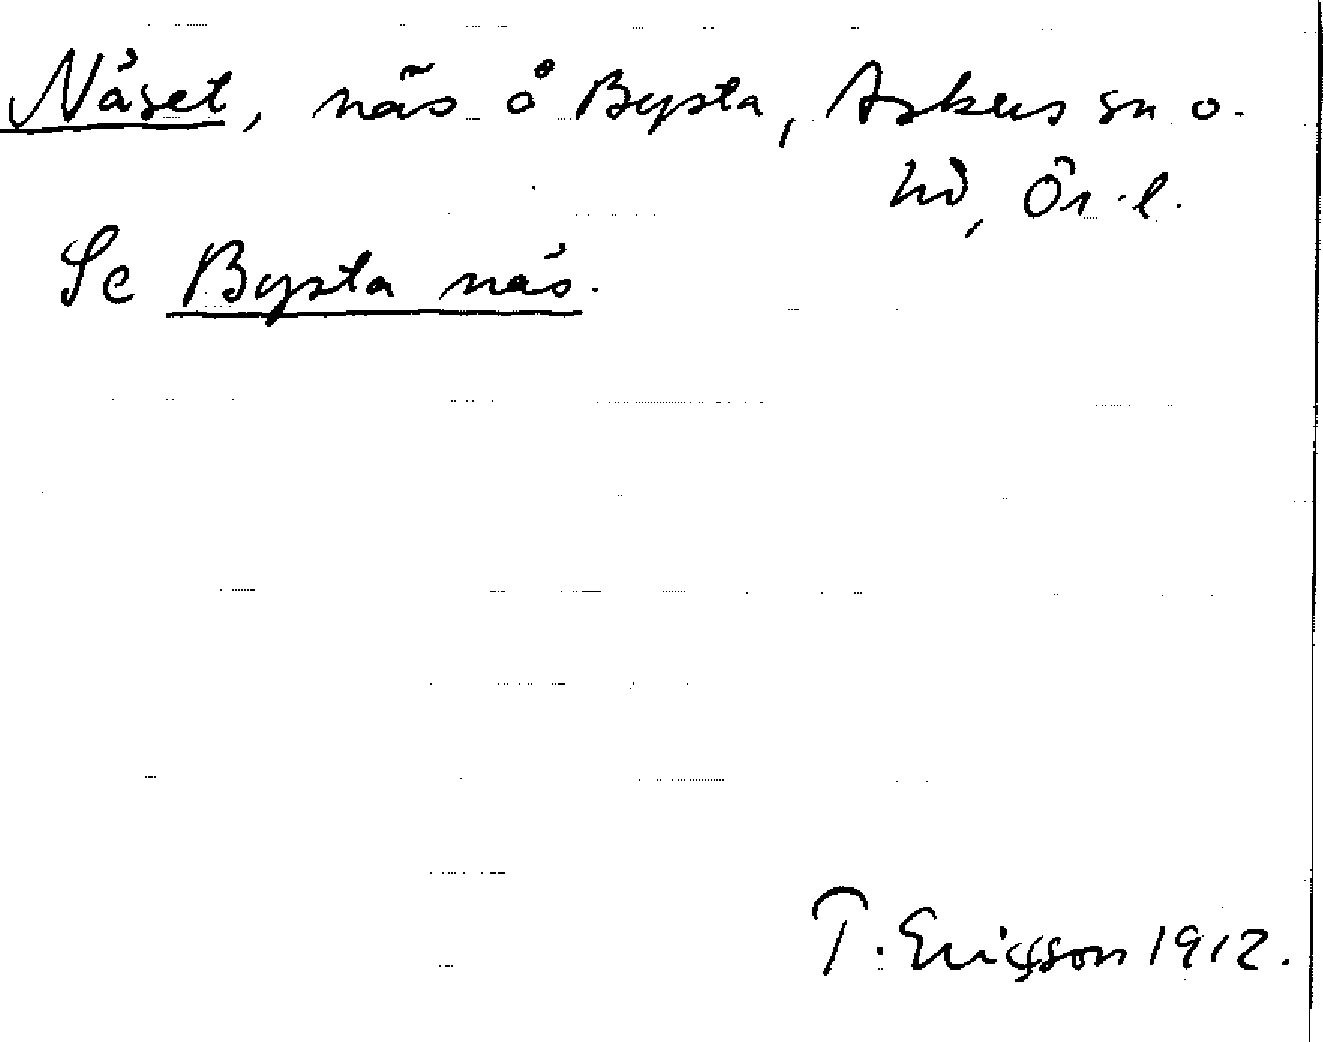 Näset, näs å Bysta, Askers sn o.
hd, Ör. l.
Se Bysta näs.
T. Ericsson 1912.